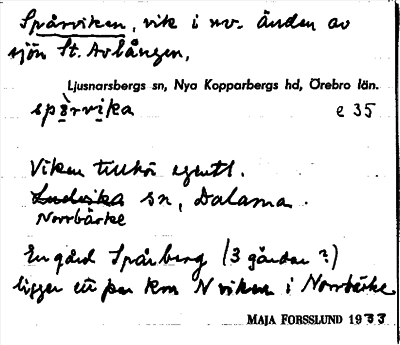 Spårviken, vik i nv. änden av
sjön St. Avlången,
Ljusnarsbergs sn, Nya Kopparbergs hd, Örebro län.
spårvika e 35
Viken tillhör egentl.
Ludvika sn, Dalarna.
Norrbärke
En gård Spårberg (3 gårdar?)
ligger ett par km N viken i Norrbärke
MAJA FORSSLUND 1933